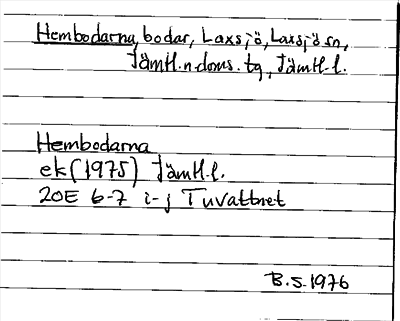 Hembodarna, bodar, Laxsjö, Laxsjö sn,
Jämtl. n. doms. tg, Jämtl. l.
Hembodarna
ek (1975) Jämtl. l.
20E 6-7 i-j Tuvattnet
B.S. 1976